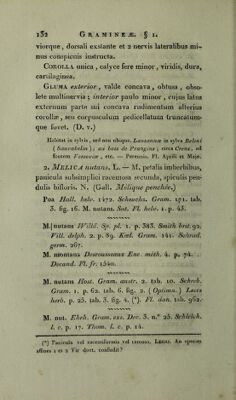 132 GRAMINEÆ. § 1.
viorque, dorsali exstante et 2 nervis lateralibus mi-
nus conspicuis instructa.
COROLLA unica, calyce fere minor, viridis, dura,
cartilaginea.
GLUMA exterior, valde concava, obtusa, obso-
lete multinervia ; interior paulo minor, cujus latus
externum parti sui concava rudimentum alterius
corollæ, seu corpusculum pedicellatum truncatum-
que fovet. (D. v.)
Habitat in sylvis, sed non ubique. Lausannæ in sylva Belini
( Sauvabelin ); au bois de Prangins; circa Crans, ad
fontem Versoviæ, etc. — Perennis. Fl. Aprili et Majo.
2. MELICA nutans. L. — M. petalis imberbibus,
panicula subsimplici racemosa secunda, spiculis pen-
dulis bifloris. N. (Gall. Mélique penchée.)
Poa Hall. helv. 1472. Scheuchz. Gram. 171. tab.
3. fig. 16. M. nutans. Sut. Fl. helv. 1. p. 43.
M. nutans Willd. Sp. pl. 1. p. 383. Smith brit. 92.
Vill. delph. 2. p. 89. Kœl. Gram. 141. Schrad.
germ. 267.
M. montana Desroussœaux Enc. méth. 4. p. 74.
Decand. Fl. fr. 1540.
M. nutans Host. Gram. austr. 2. tab. 10. Schreb.
Gram. 1. p. 62. tab. 6. fig. 2. ( Optima. ) Leers
herb. p. 25. tab. 3. fig. 4. (*). Fl. dan. tab. 962.
M. nut. Ehrh. Gram. exs. Dec. 3. n.° 25. Schleich.
l. c. p. 17. Thom. l. c. p. 14.
(*) Panicula vel racemiformis vel ramosa. LEERS. An species
affines 1 et 2 Vir doct. confudit?